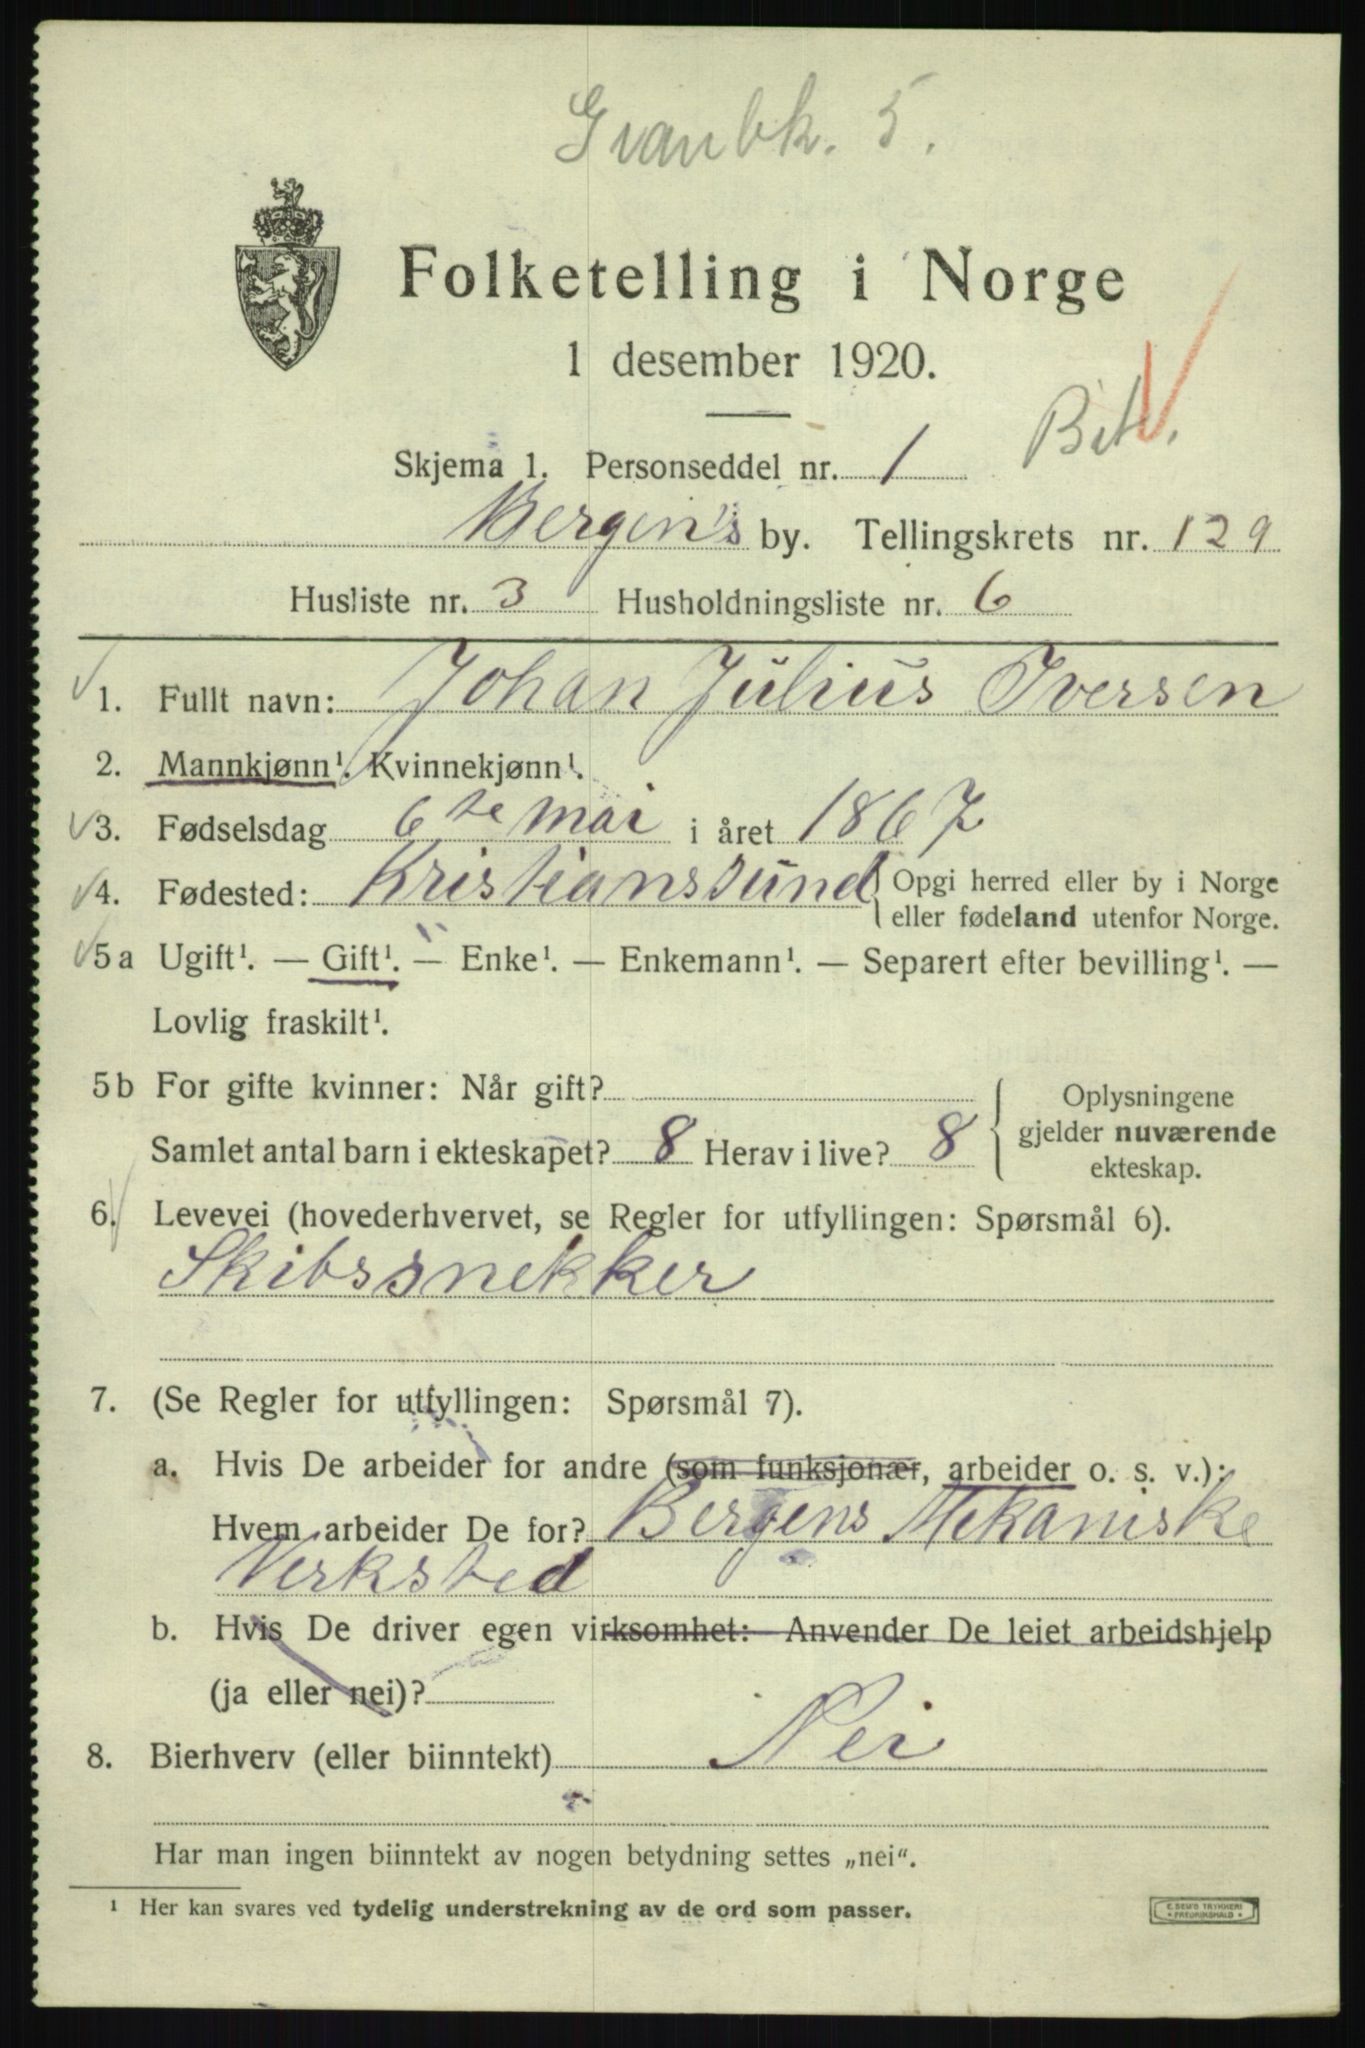 5.
Folketelling i Norge
1 desember 1920.
Skjema 1. Personseddel nr. 1
Bergen's by. Tellingskrets nr. 129
Husliste nr. 3 Husholdningsliste nr. 6
1. Fullt navn: Johan Julius Iversen
2. Mannkjønn¹. Kvinnekjønn¹.
3. Fødselsdag 6te mai i året 1867
4. Fødested: Kristianssund { Opgi herred eller by i Norge
eller fødeland utenfor Norge.
5a Ugift¹. — Gift¹. — Enke¹. — Enkemann¹. — Separert efter bevilling¹. —
Lovlig fraskilt¹.
5b For gifte kvinner: Når gift?
Samlet antal barn i ekteskapet? 8 Herav i live? 8
{ Oplysningene
gjelder nuværende
ekteskap.
6. Levevei (hovederhvervet, se Regler for utfyllingen: Spørsmål 6).
Skibssnekker
7. (Se Regler for utfyllingen: Spørsmål 7).
a. Hvis De arbeider for andre (som funksjonær, arbeider o. s. v.):
Hvem arbeider De for? Bergens Mekaniske
Verksted
b. Hvis De driver egen virksomhet: Anvender De leiet arbeidshjelp
(ja eller nei)?
8. Bierhverv (eller biinntekt) Nei
Har man ingen biinntekt av nogen betydning settes „nei“.
¹ Her kan svares ved tydelig understrekning av de ord som passer.
E. SEM'S TRYKKERI
* FREDRIKSHALD *